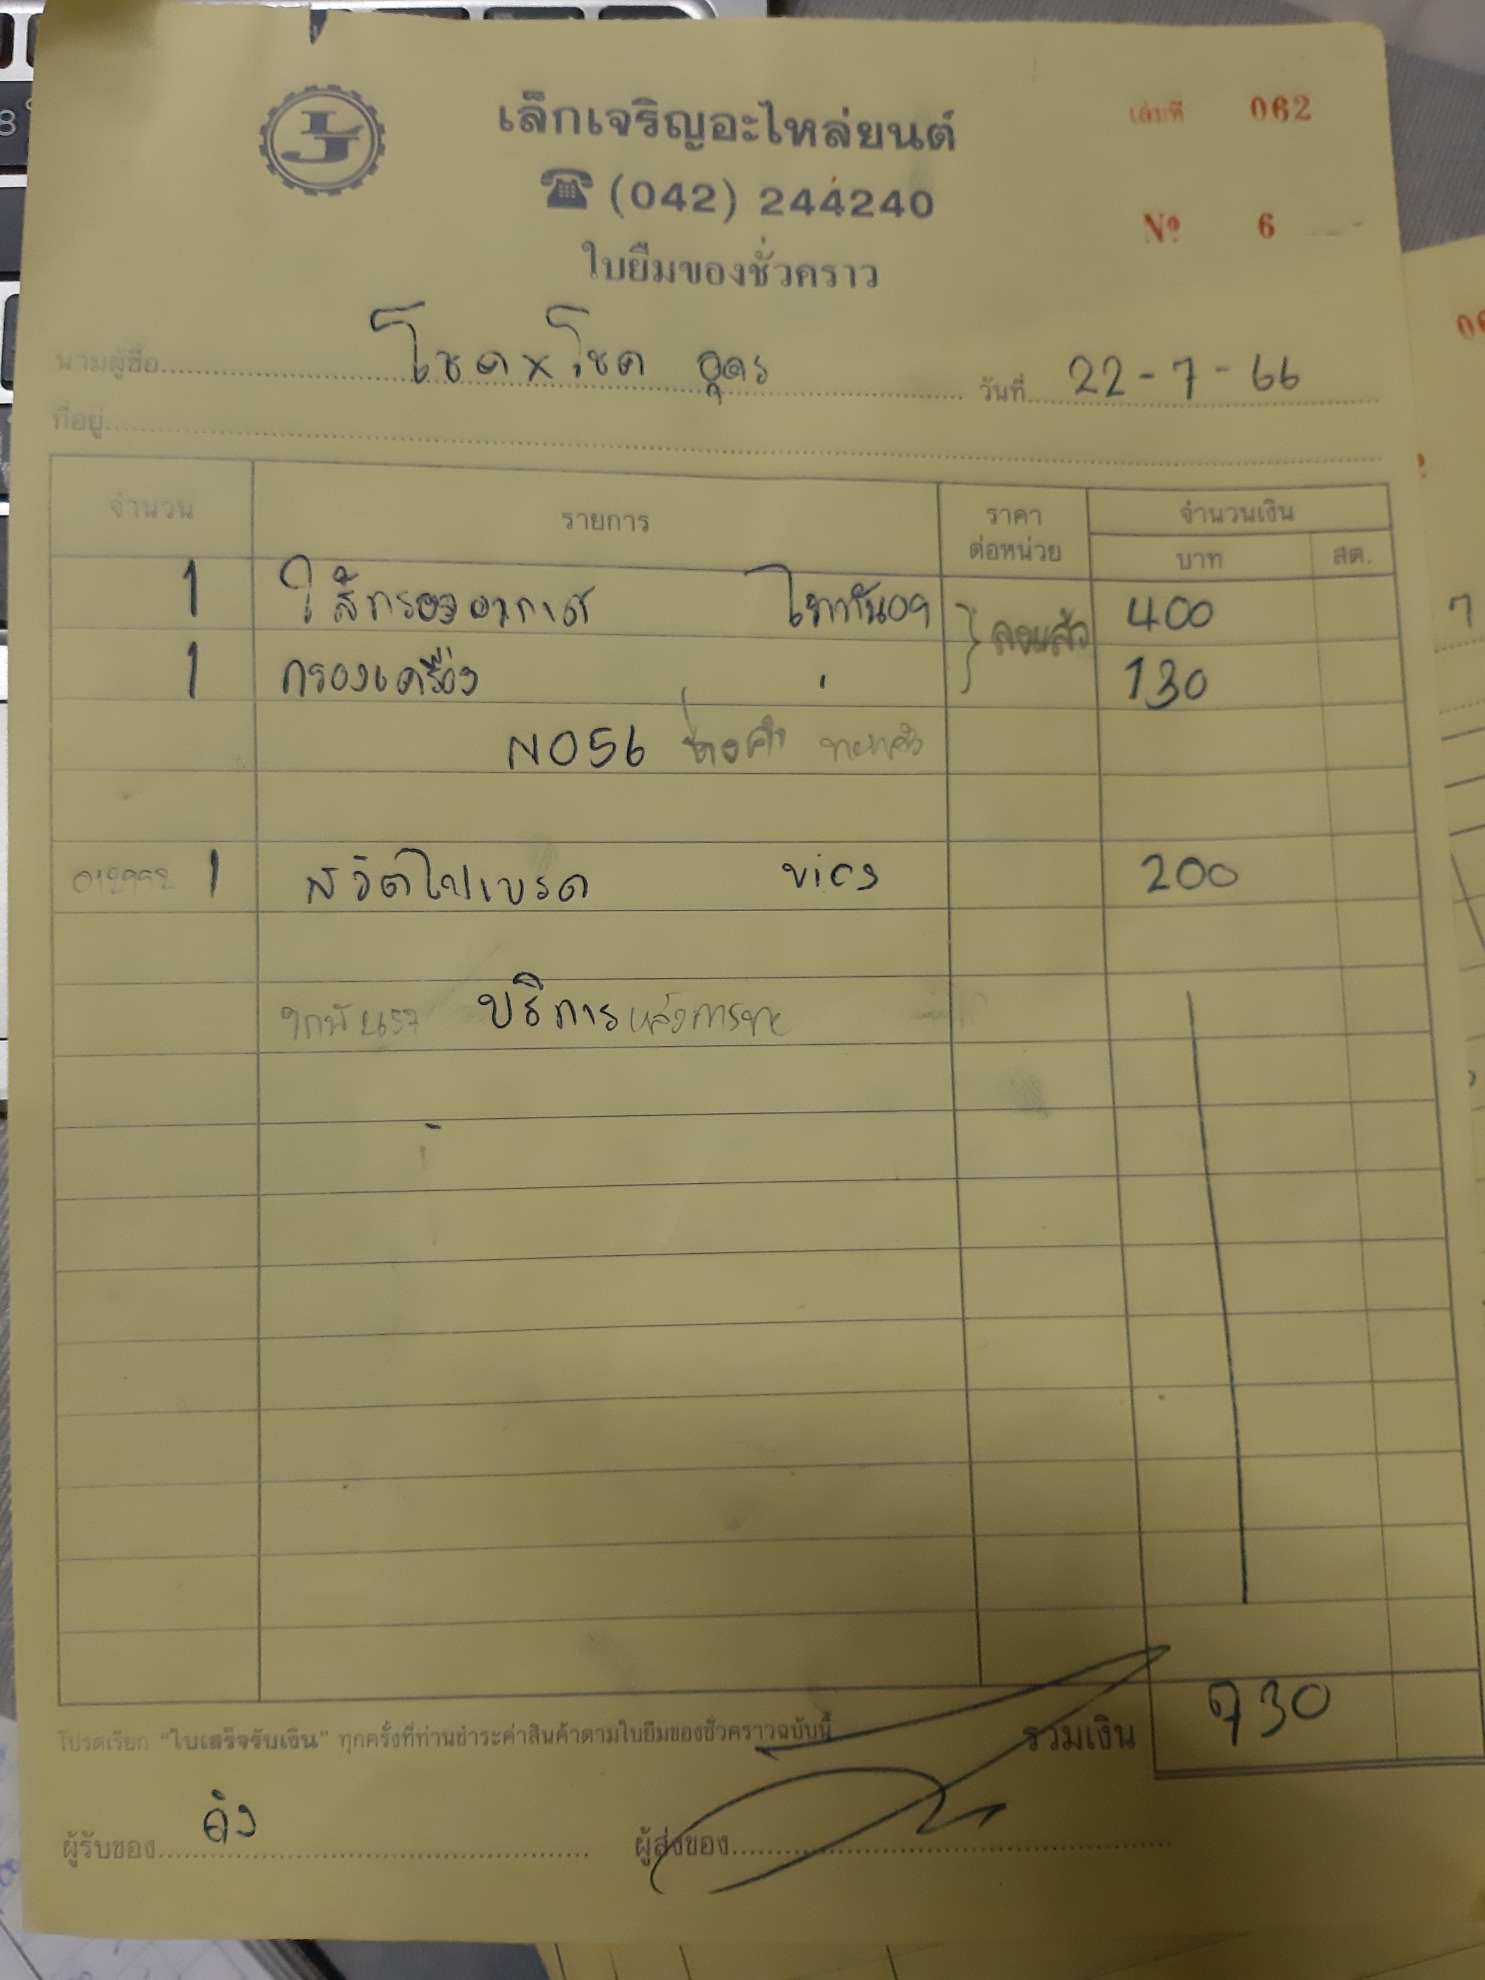 เล็กเจริญอะไหล่ยนต์
เล่มที่ 062
(042) 244240
Nº 6
ใบยืมของชั่วคราว
นามผู้ซื้อ โชค×โชค อุดร วันที่ 22-7-66
ที่อยู่
จำนวน รายการ ราคาต่อหน่วย จำนวนเงิน
บาท สต.
1 ใส้กรองอากาศ ไททัน09 400
1 กรองเครื่อง 130
NO56
1 สวิตไฟเบรค vios 200
บริการ
โปรดเรียก "ใบเสร็จรับเงิน" ทุกครั้งที่ท่านชำระค่าสินค้าตามใบยืมของชั่วคราวฉบับนี้ รวมเงิน 730
ผู้รับของ ผู้ส่งของ